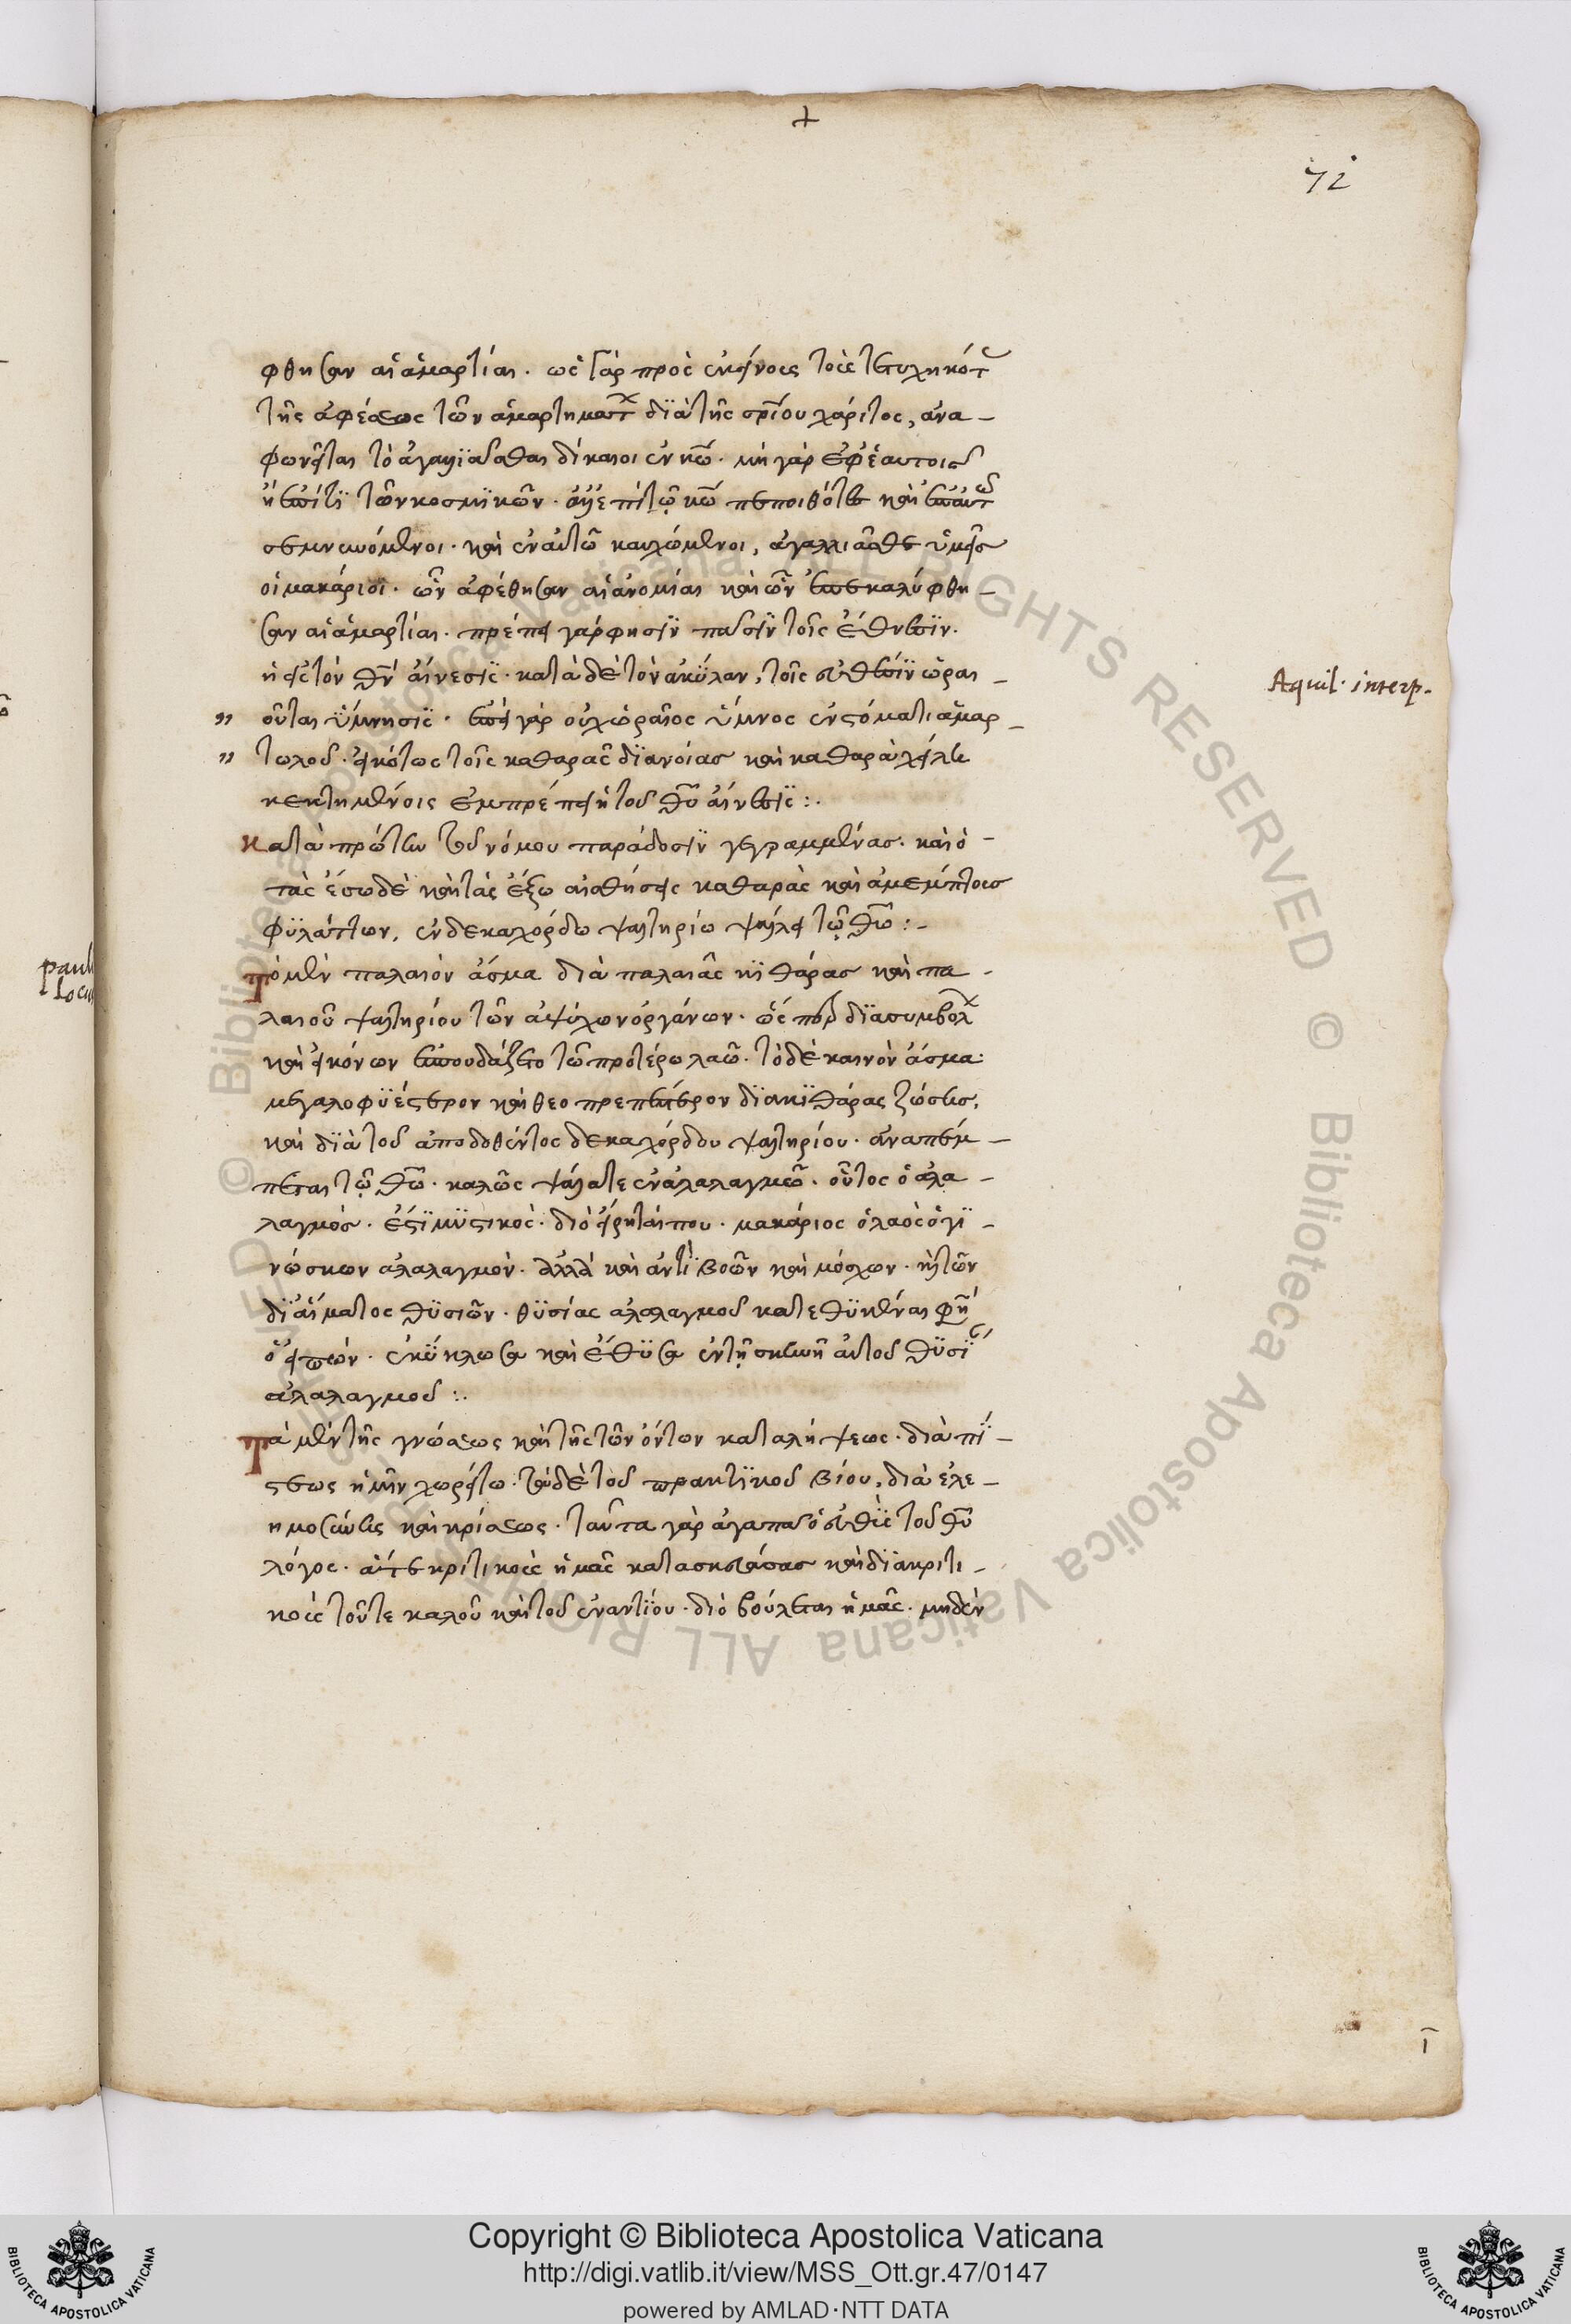 +
72
φθησαν αἱ ἁμαρτίαι. ὡς γὰρ πρὸς ἐκείνους τοὺς τετυχηκότ
τῆς ἀφέσεως τῶν ἁμαρτημάτ διὰ τῆς σρίου χάριτος, ἀνα-
φωνεῖται τὸ ἀγαλλιᾶσθαι δίκαιοι ἐν κω. μὴ γὰρ ἐφ' ἑαυτοῖς
ἢ ἐπί τι τῶν κοσμικῶν. ἀλλ' ἐπὶ τῷ κω πεποιθότες καὶ ἐπ' αυτ
σεμνυνόμενοι. καὶ ἐν αὐτῶ καυχώμενοι, ἀγαλλιᾶσθε ὑμεῖς
οἱ μακάριοι. ὧν ἀφέθησαν αἱ ἀνομίαι καὶ ὧν ἐπεκαλύφθη-
σαν αἱ ἁμαρτίαι. πρέπει γάρ φησιν πᾶσιν τοῖς ἔθνεσιν.
ἡ εἰς τὸν θν αἴνεσις. κατὰ δὲ τὸν ἀκύλαν, τοῖς εὐθέσιν ὡραι-
οῦται ὕμνησις. ἐπεὶ γὰρ οὐχ ὡραῖος ὕμνος ἐν στόματι ἁμαρ-
τωλοῦ. εἰκότως τοῖς καθαρὰς διανοίας καὶ καθαρὰ χείλη
κεκτημένοις ἐμπρέπει ἡ τοῦ θυ αἴνεσις:.
Aquil. interp.
Κατὰ πρώτην τοῦ νόμου παράδοσιν γεγραμμένας. καὶ ὁ-
τὰς ἔσω δὲ καὶ τὰς ἔξω αἰσθήσεις καθαρὰς καὶ ἀμέμπτους
φυλάττων, ἐν δεκαχόρδω ψαλτηρίω ψάλλει τῷ θω:-
Τὸ μὲν παλαιὸν ἆσμα διὰ παλαιᾶς κιθάρας καὶ πα-
λαιοῦ ψαλτηρίου τῶν ἀψύχων ὀργάνων. ὥσπερ διὰ συμβολ
καὶ εἰκόνων ἐσπουδάζετο τῶ προτέρω λαῶ. τὸ δὲ καινὸν ἆσμα
μεγαλοφυέστερον καὶ θεοπρεπέστερον διὰ κιθάρας ζώσης,
καὶ διὰ τοῦ ἀποδοθέντος δεκαχόρδου ψαλτηρίου. ἀναπέμ-
πεται τῷ θω. καλῶς ψάλατε ἐν ἀλαλαγμῶ. οὗτος ὁ ἀλα-
λαγμός. ἐστὶ μυστικός. διὸ εἴρηταί που. μακάριος ὁ λαὸς ὁ γι-
νώσκων ἀλαλαγμόν. ἀλλὰ καὶ ἀντὶ βοῶν καὶ μόσχων. καὶ τῶν
δι' αἵματος θυσιῶν. θυσίας ἀλαλαγμοῦ κατεθυκέναι φη
ὁ εἰπών. ἐκύκλωσα καὶ ἔθυσα ἐν τῇ σκηνῆ αὐτοῦ θυσι
ἀλαλαγμοῦ:.
Τὰ μὲν τῆς γνώσεως καὶ τῆς τῶν ὄντων καταλήψεως. διὰ πί-
στεως ἡμῖν χωρείτω. τὰ δὲ τοῦ πρακτικοῦ βίου, διὰ ἐλε-
ημοσύνης καὶ κρίσεως. ταῦτα γὰρ ἀγαπᾶ ὁ εὐθὺς τοῦ θυ
λόγος. ἅτε κριτικοὺς ἡμᾶς κατασκευάσας καὶ διακριτι-
κοὺς τοῦ τε καλοῦ καὶ τοῦ ἐναντίου. διὸ βούλεται ἡμᾶς. μηδὲν
Copyright © Biblioteca Apostolica Vaticana
http://digi.vatlib.it/view/MSS_Ott.gr.47/0147
powered by AMLAD·NTT DATA